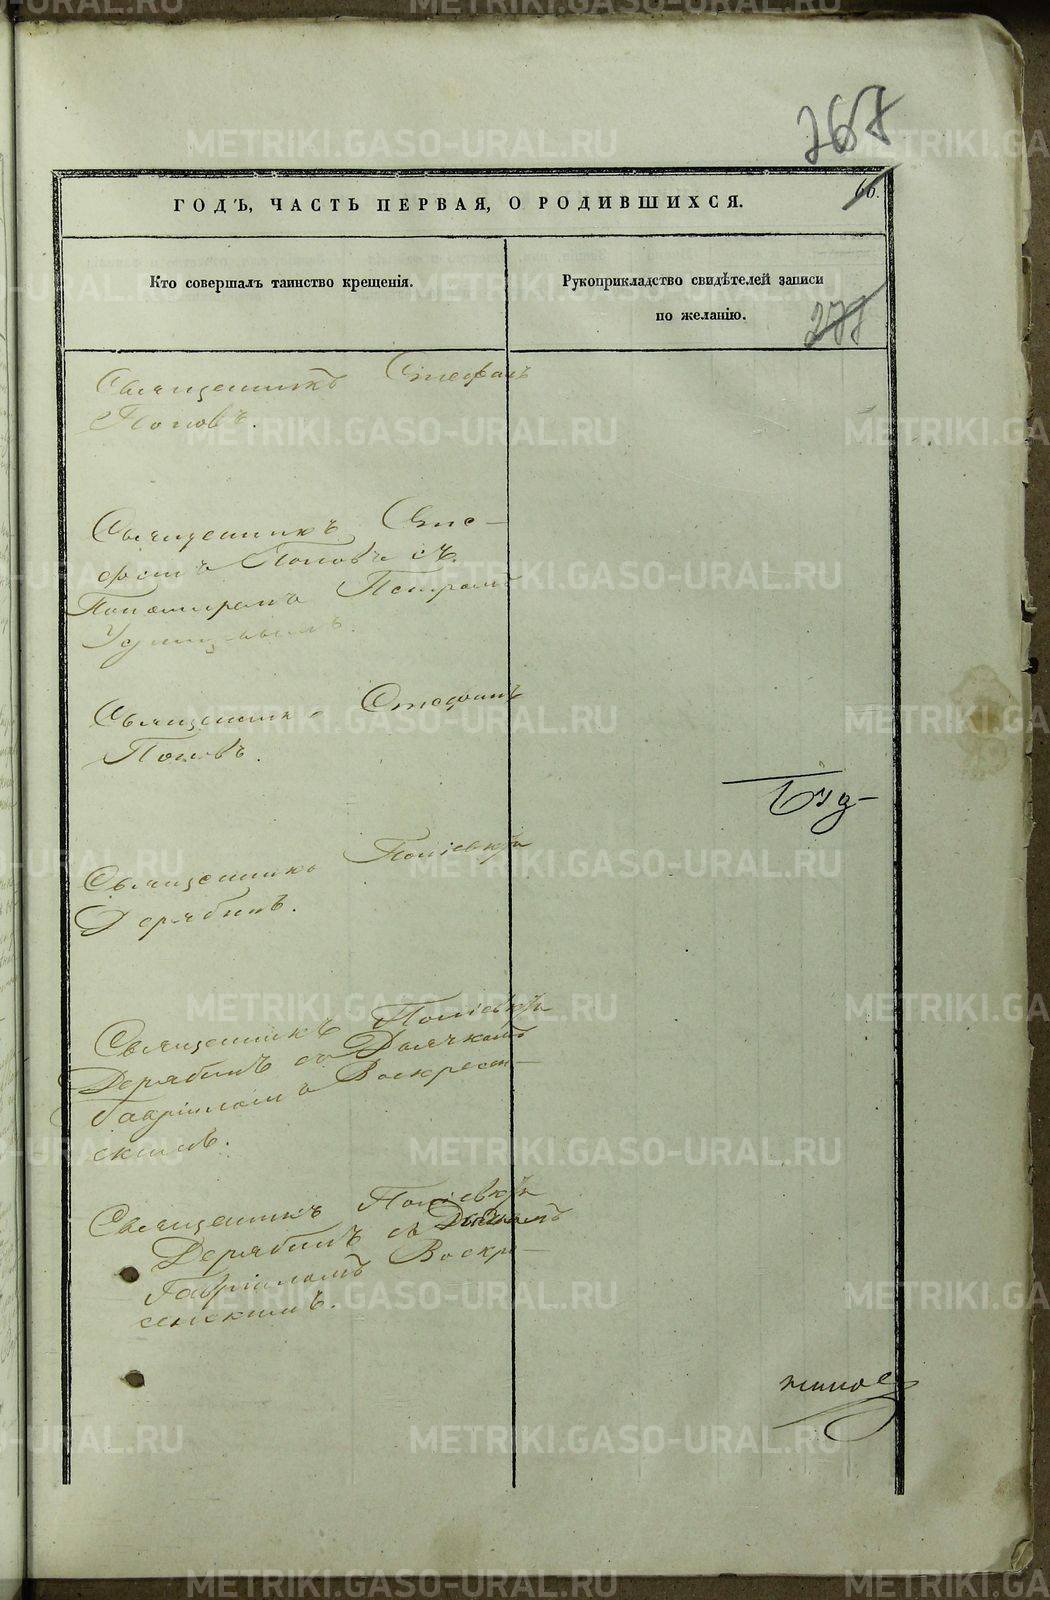 267
66.
ГОДЪ, ЧАСТЬ ПЕРВАЯ, О РОДИВШИХСЯ.
Кто совершалъ таинство крещенія.
Рукоприкладство свидѣтелей записи
по желанію.
277
Священникъ Стефанъ
Поповъ.
Священникъ Сте-
фанъ Поповъ съ
Пономаремъ Петромъ
Священникъ Стефанъ
Поповъ.
Священникъ
Дерябинъ.
Священникъ
Дерябинъ съ Дьячкомъ
Гавріиломъ Воскресен-
скимъ.
Священникъ
Дерябинъ съ Дьячкомъ
Гавріиломъ Воскре-
сенскимъ.
METRIKI.GASO-URAL.RU